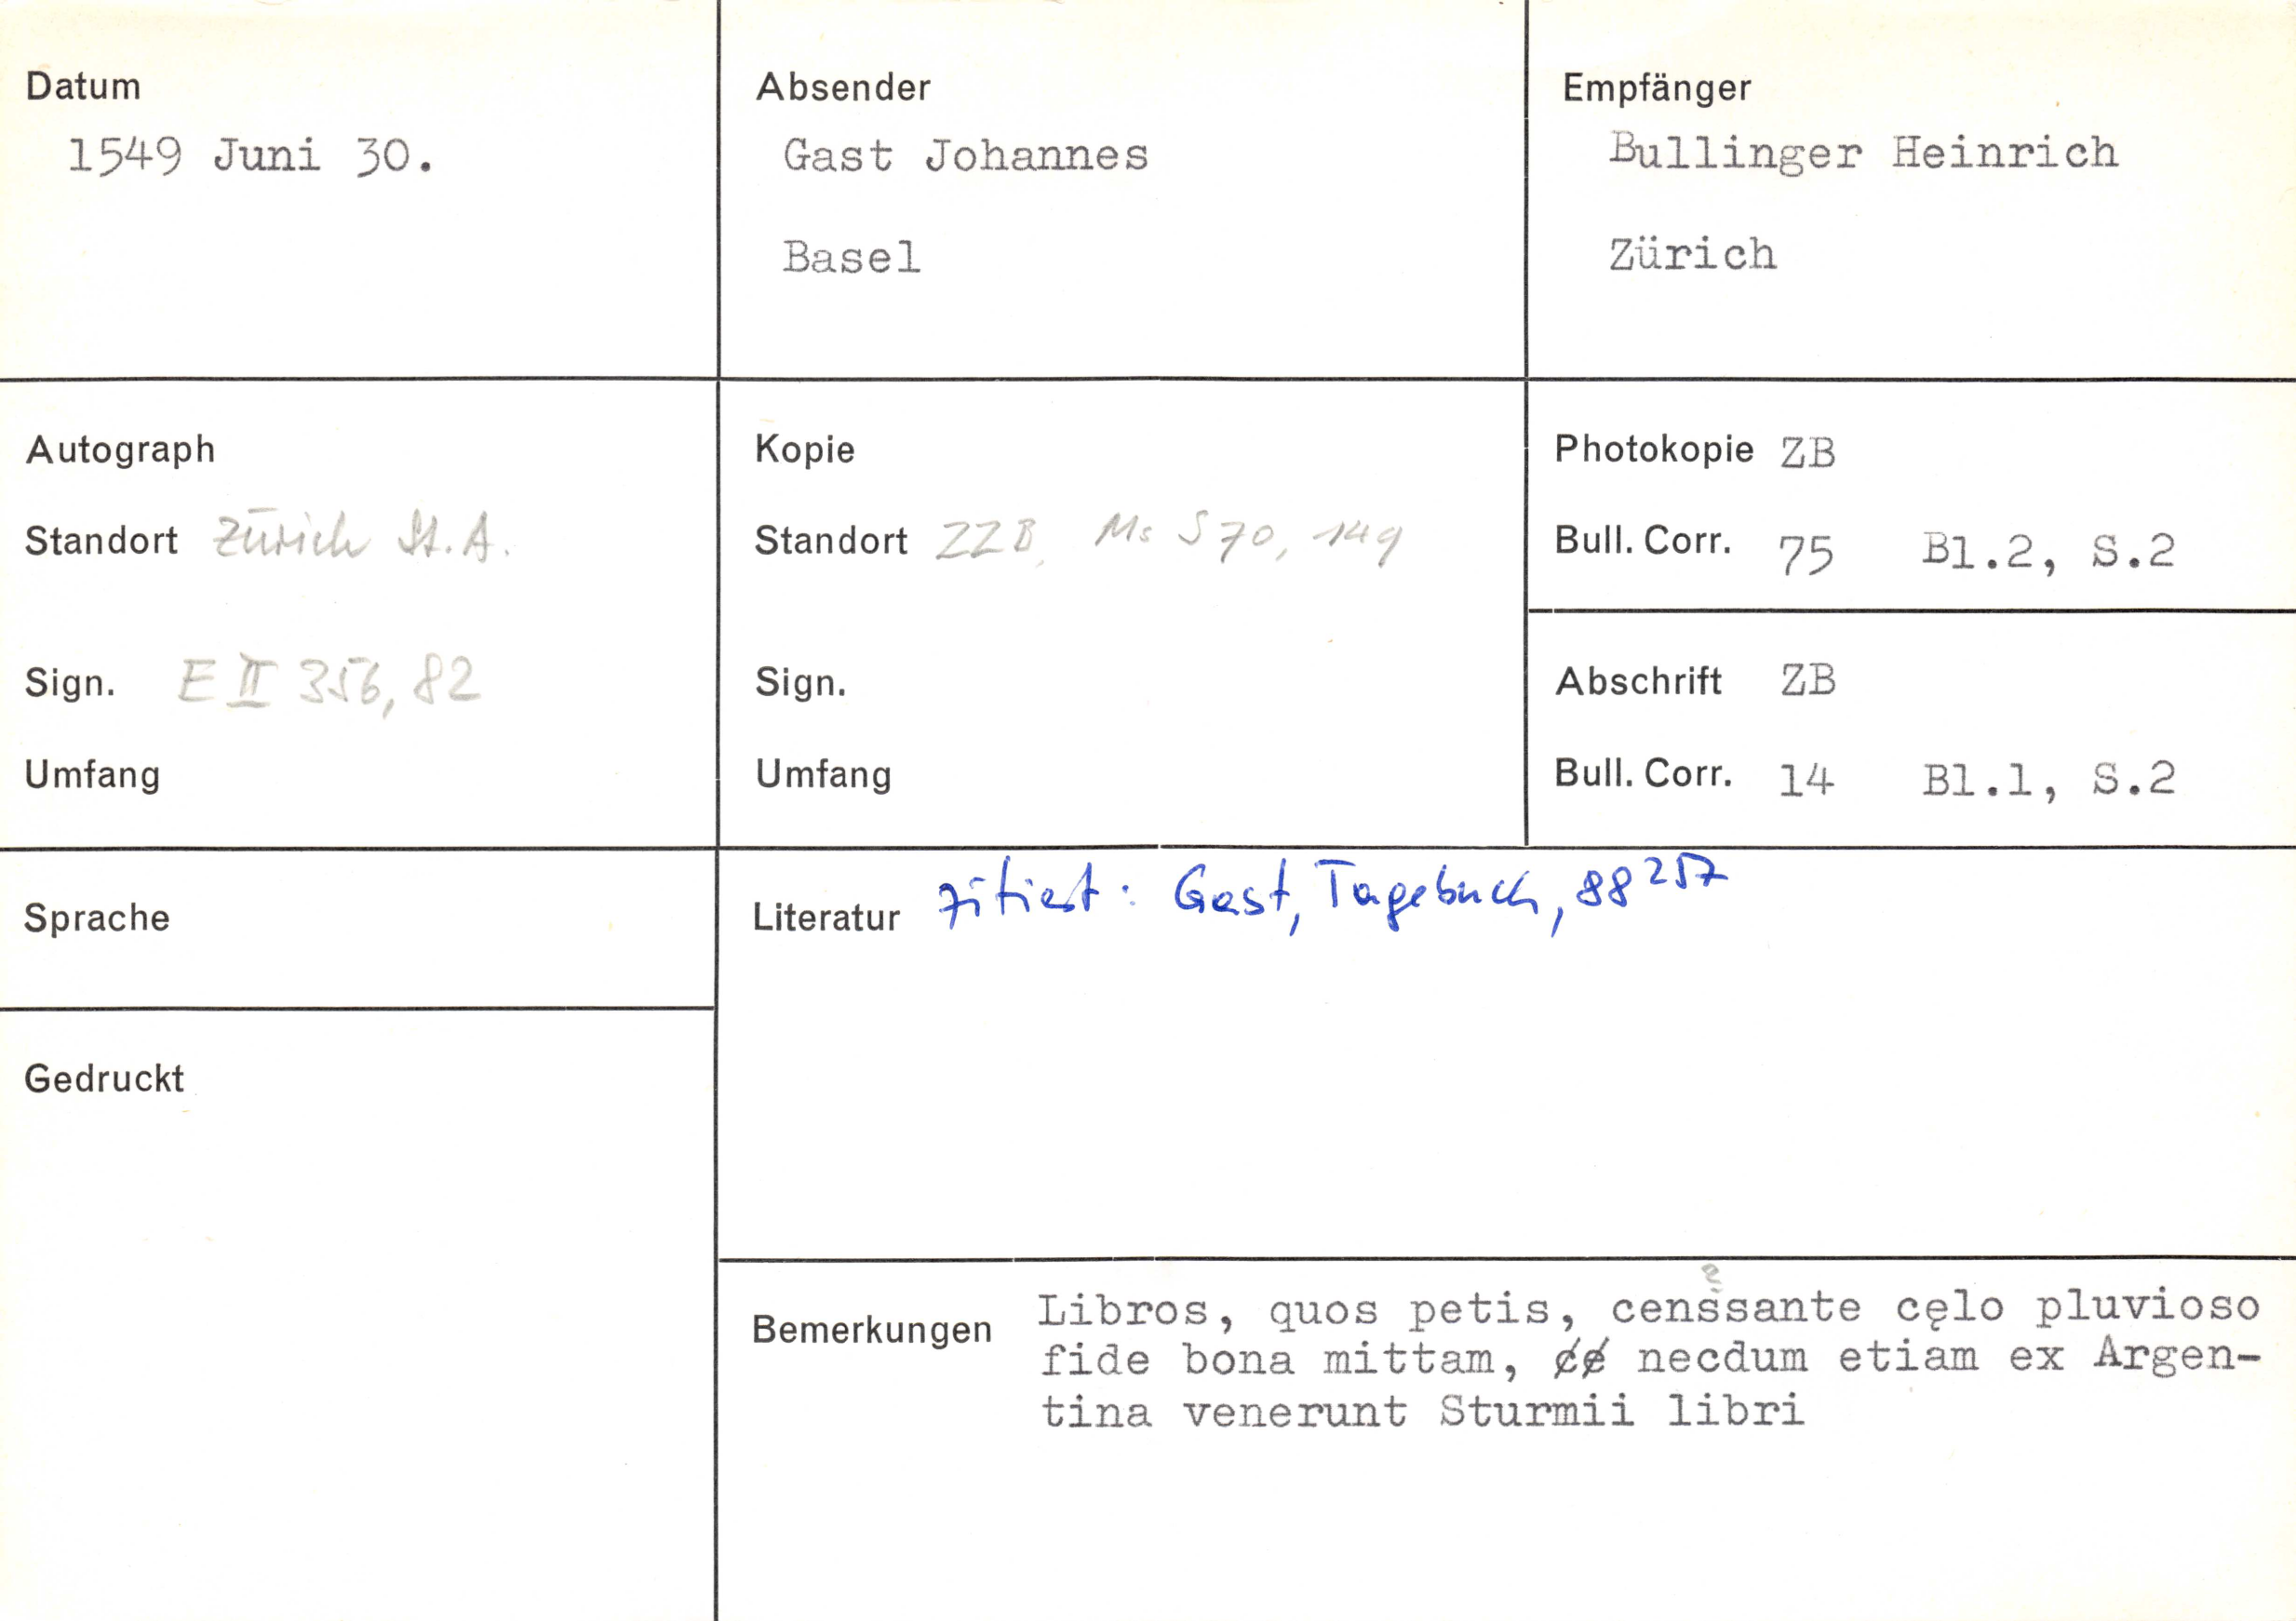 Datum
1549 Juni 30.
Absender
Gast Johannes
Basel
Empfänger
Bullinger Heinrich
Zürich
Autograph
Standort Zürich St.A.
Sign. E II 356, 82
Umfang
Kopie
Standort ZZB, Ms S 70, 149
Sign.
Umfang
Photokopie ZB
Bull. Corr. 75 Bl.2, S.2
Abschrift ZB
Bull. Corr. 14 Bl.1, S.2
Sprache
Gedruckt
Literatur zitiert: Gast, Tagebuch, 88²⁵⁷
Bemerkungen
?
Libros, quos petis, censsante cęlo pluvioso
fide bona mittam, necdum etiam ex Argen-
tina venerunt Sturmii libri